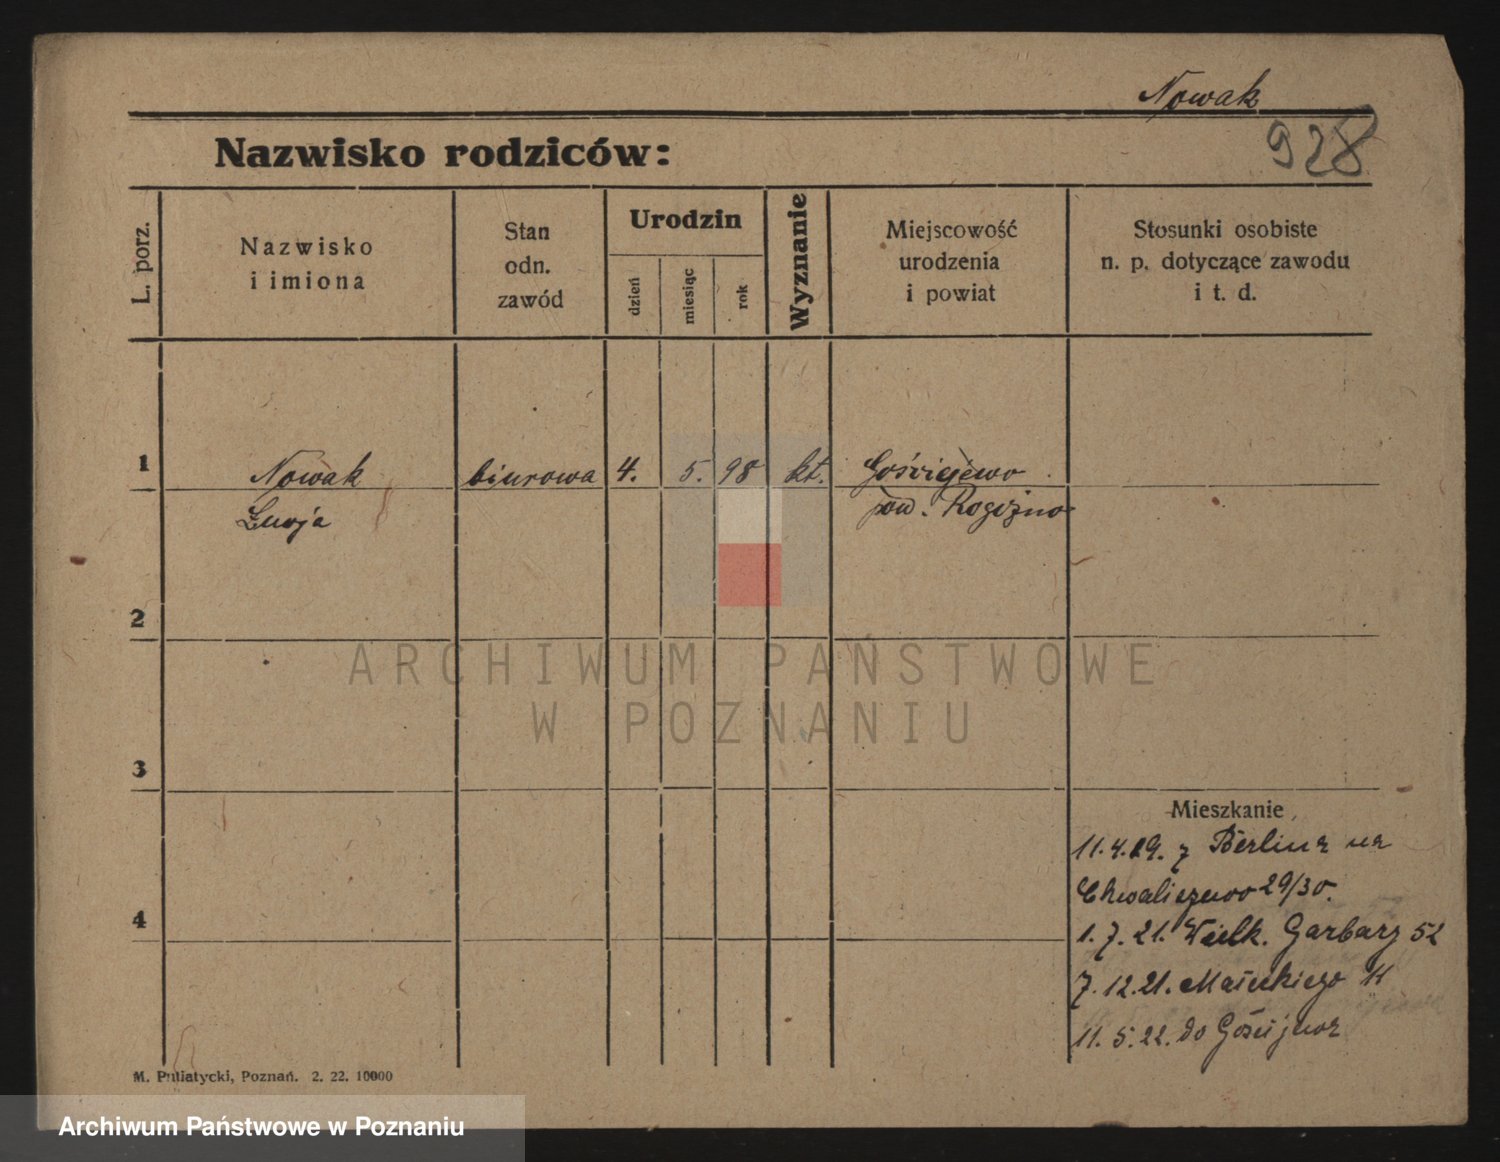 Nowak
928
Nazwisko rodziców:
L. porz.
Nazwisko
i imiona
Stan
odn.
zawód
Urodzin
dzień
miesiąc
rok
Wyznanie
Miejscowość
urodzenia
i powiat
Stosunki osobiste
n. p. dotyczące zawodu
i t. d.
1
Nowak biurowa 4. 5. 98 kt. Gościejewo
pow. Rogoźno
2
ARCHIWUM PAŃSTWOWE
W POZNANIU
3
Mieszkanie
11.4.19. z Berlina na
Chwaliszewo 29/30.
4
1.7.21. Wielk. Garbary 52
7.12.21. Małeckiego 11
11.5.22. do Gościejewa
M. Putiatycki, Poznań. 2. 22. 10000
Archiwum Państwowe w Poznaniu